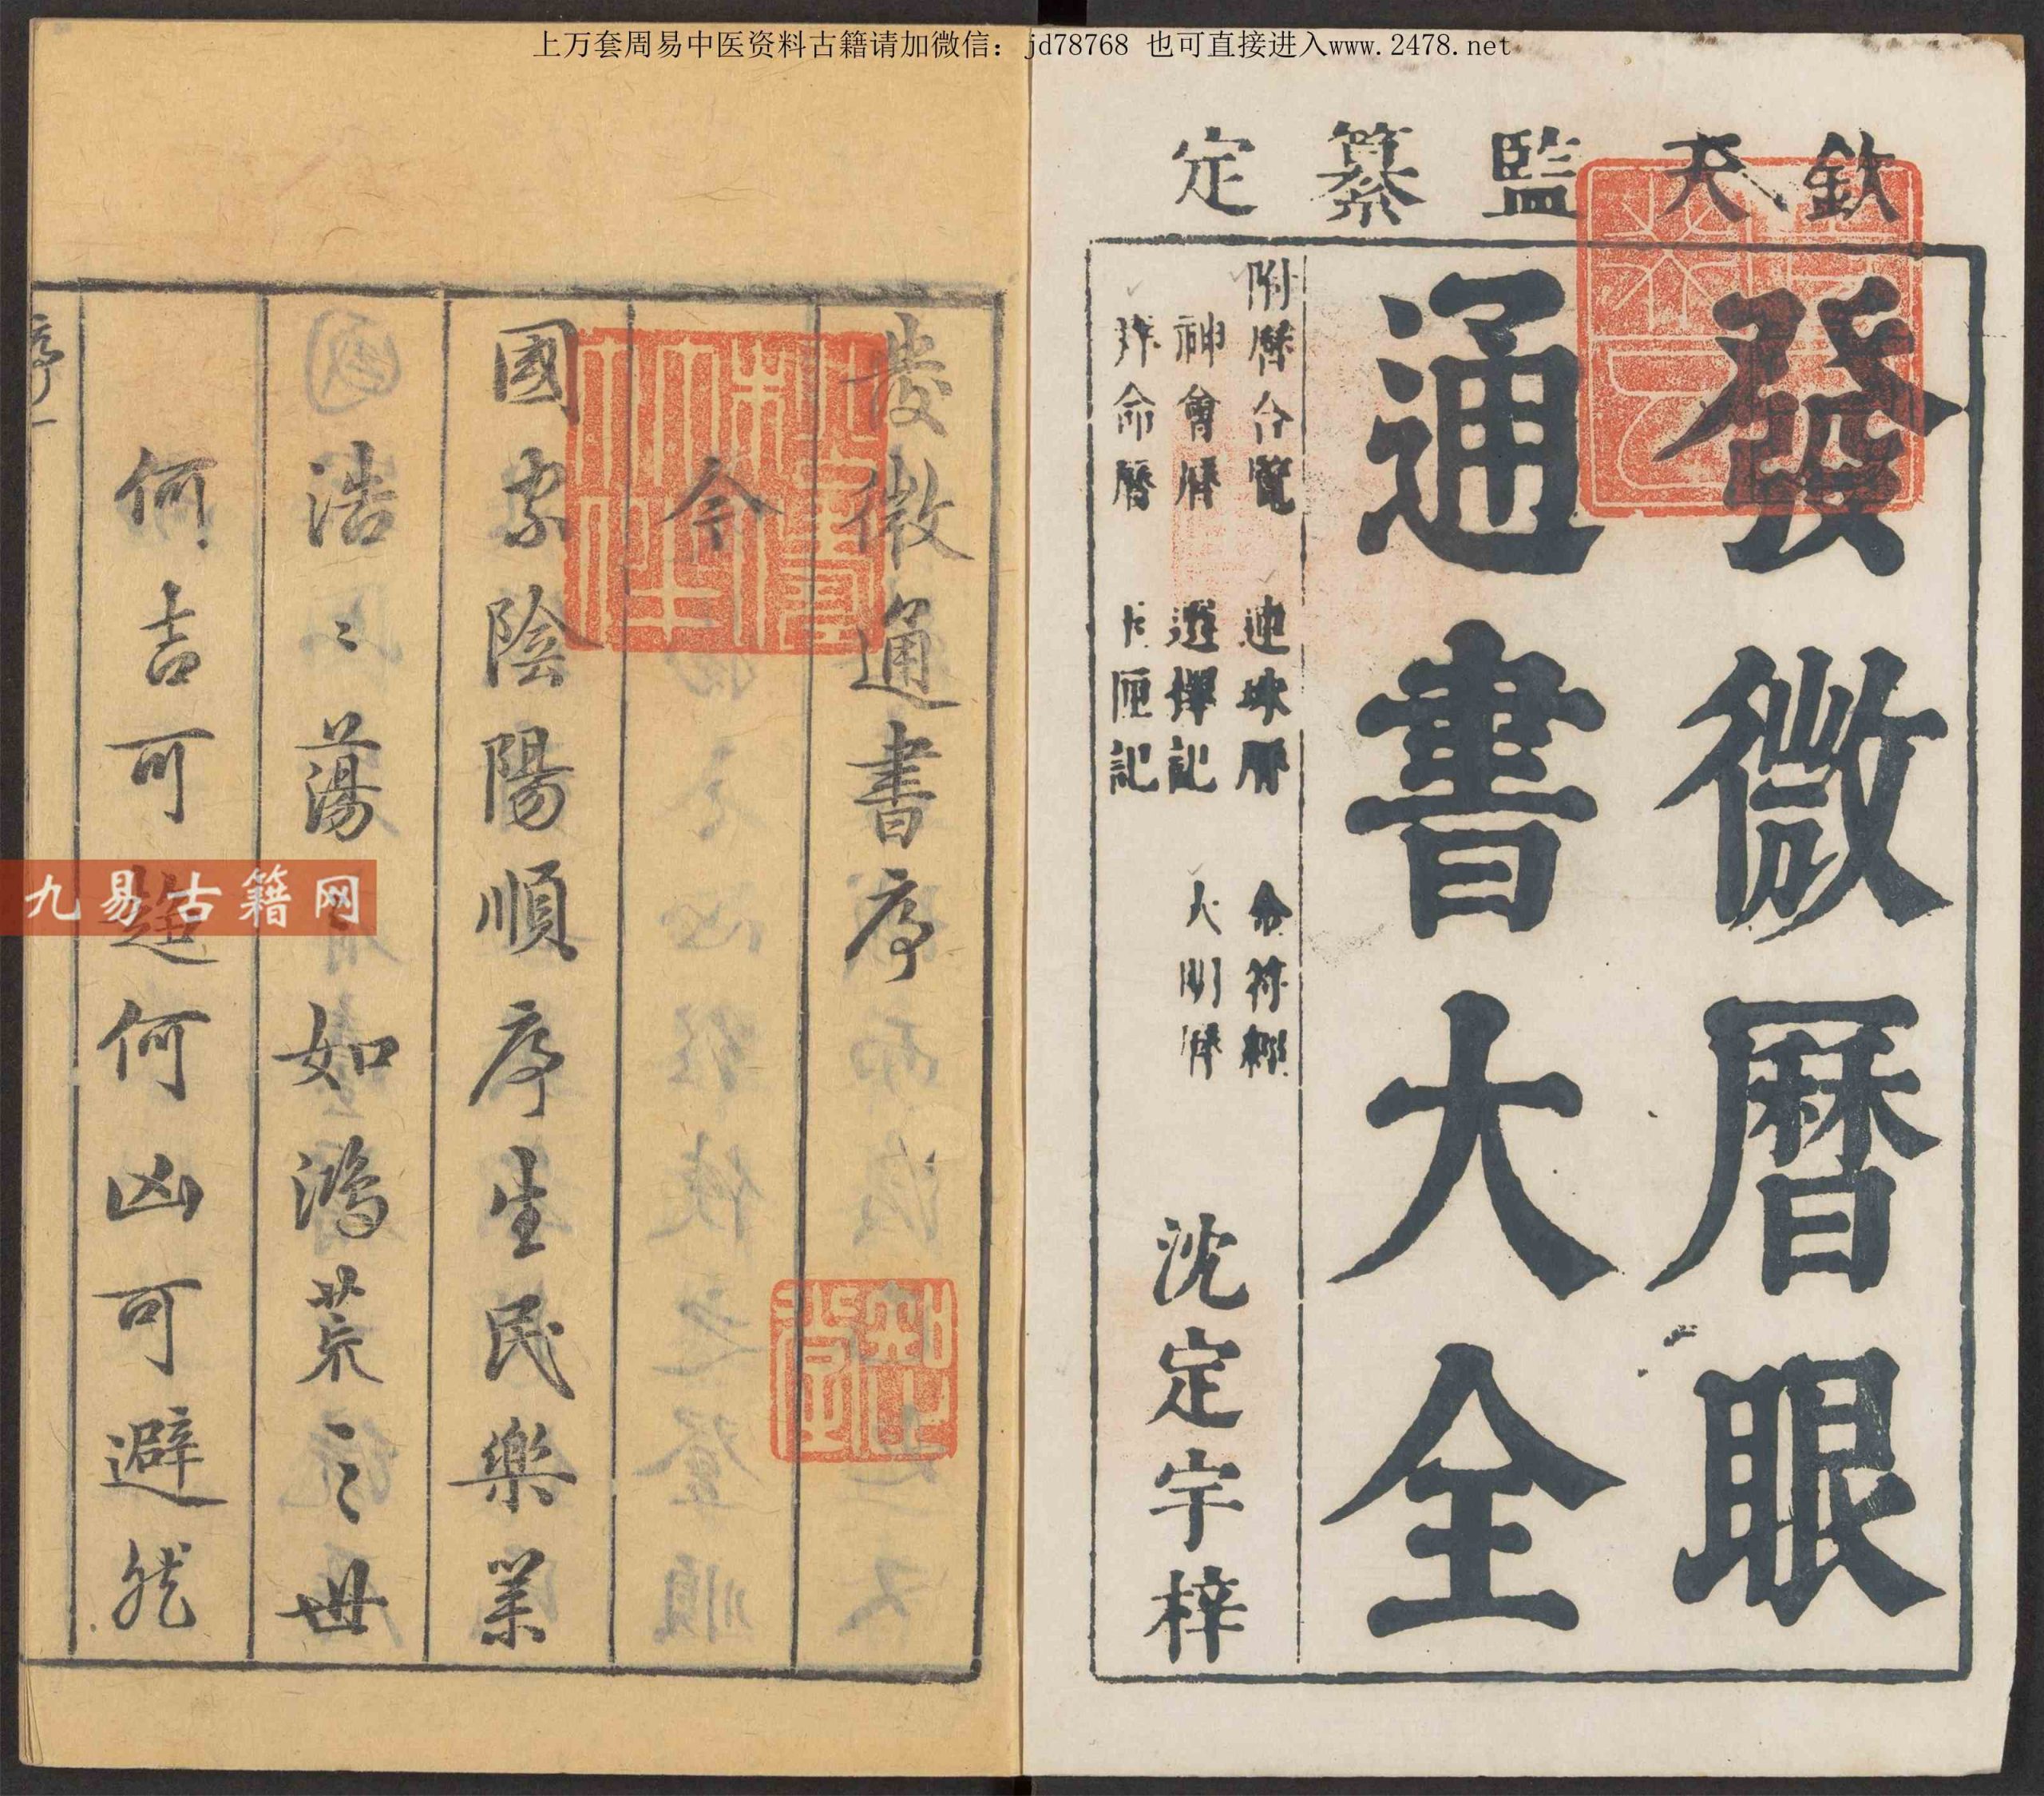 上万套周易中医资料古籍请加微信：jd78768 也可直接进入www.2478.net
欽天監纂定
發微曆眼
通書大全
附曆合覽 連珠曆 命符經
神會曆 選擇記 大明曆
命曆 卜匣記
沈定宇梓
發微通書序
今
國家陰陽順序生民樂業
浩〻蕩〻如鴻荒之世
何吉可趨何凶可避然
序一
九易古籍网